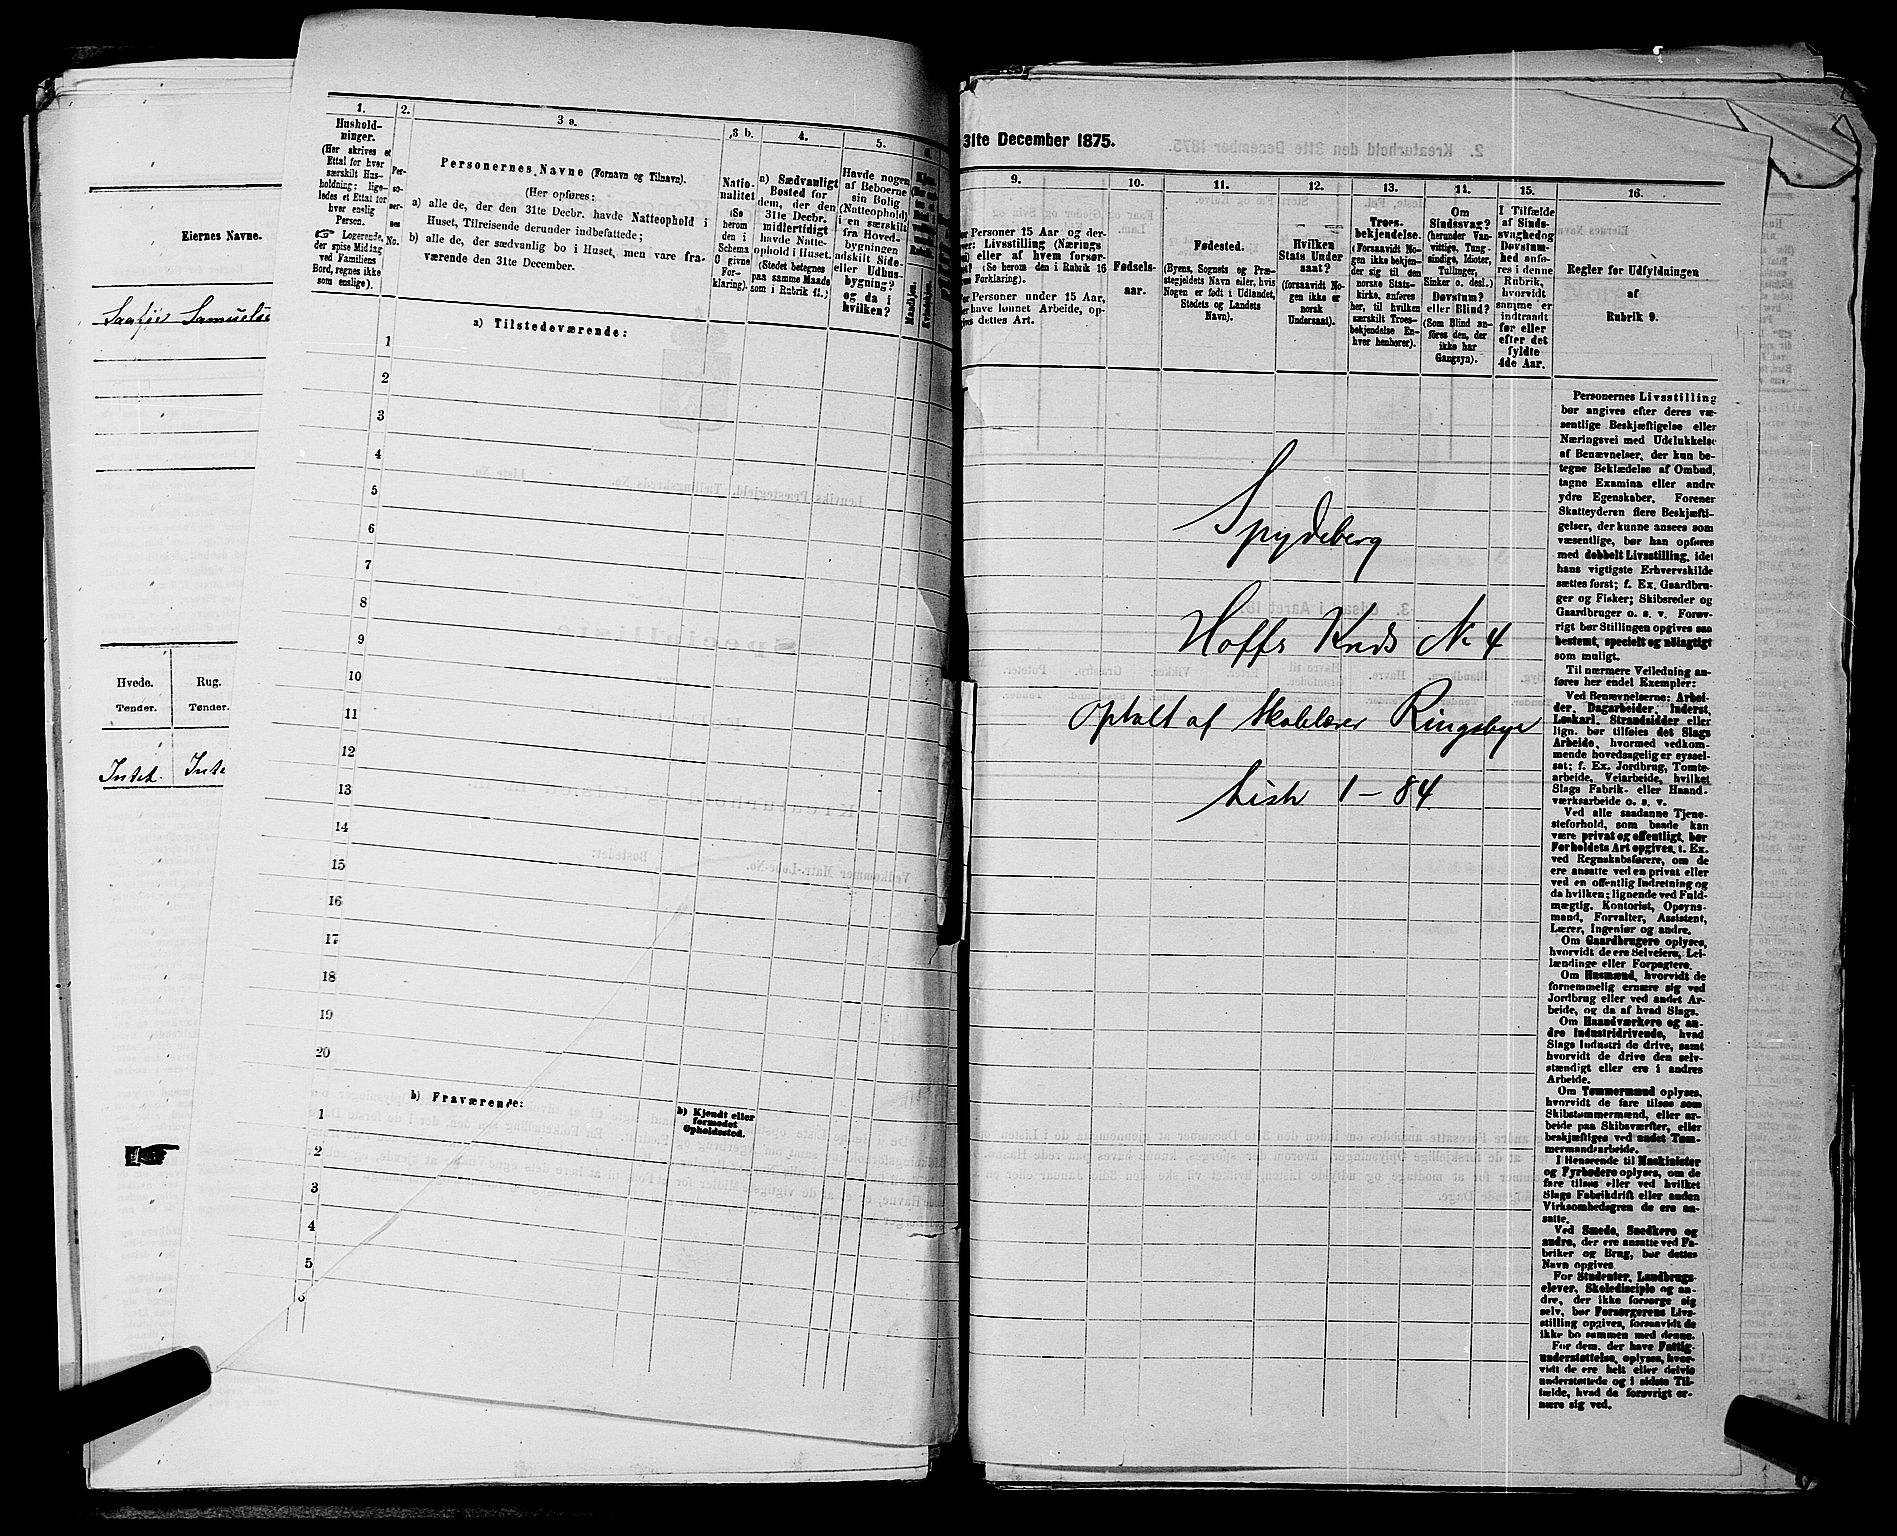 Eiernes Navne.
Samuelse
Hvede.
Tønder.
Rug.
Tønder.
Intet.
Inte
1.
Hushold-
ninger.
(Her skrives et
Ettal for hver
særskilt Hus-
holdning; lige-
ledes et Ettal for
hver enslig
Person.
☞ Logerende,
der spise Middag
ved Familiens
Bord, regnes ikke
som enslige).
2.
Per-
so-
ner-
nes
No.
3 a.
Personernes Navne (Fornavn og Tilnavn).
(Her opføres:
a) alle de, der den 31te Decbr. havde Natteophold i
Huset, Tilreisende derunder indbefattede;
b) alle de, der sædvanlig bo i Huset, men vare fra-
værende den 31te December.
3 b.
Natio-
nalitet
(Se
herom
den i
Schema
O givne
For-
klaring).
4.
a) Sædvanligt
Bosted for
dem, der den
31te Decbr.
midlertidigt
havde Natte-
ophold i Huset.
(Stedet betegnes
paa samme Maade
som i Rubrik 11.)
5.
Havde nogen
af Beboerne
sin Bolig
(Natteophold)
i en særskilt
fra Hoved-
bygningen
adskilt Side-
eller Udhus-
bygning?
og da i
hvilken?
6.
Mandkjøn.
Kvindekjøn.
a) Tilstedeværende:
1
2
3
4
5
6
7
8
9
10
11
12
13
14
15
16
17
18
19
20
b) Fraværende:
b) Kjendt eller
formodet
Opholdssted.
1
2
3
4
5
6
31te December 1875.
9.
Personer 15 Aar og der-
over: Livsstilling (Nærings
eller af hvem forsør-
(Se herom den i Rubrik 16
Forklaring).
Personer under 15 Aar,
have lønnet Arbeide, op-
gives dettes Art.
10.
Fødsels-
aar.
11.
Fødested.
(Byens, Sognets og Præ-
stegjeldets Navn eller, hvis
Nogen er født i Udlandet,
Stedets og Landets
Navn).
12.
Hvilken
Stats Under
saat?
(forsaavidt No-
gen ikke er
norsk
Undersaat).
13.
Troes-
bekjendelse.
(Forsaavidt No-
gen ikke bekjen-
der sig til den
norske Stats-
kirke, anføres
her, til hvilken
særskilt Troes-
bekjendelse En-
hver henhører).
14.
Om
Sindssvag?
(herunder Van-
vittige, Tung-
sindige, Idioter,
Tullinger,
Sinker o. desl.)
Døvstum?
eller Blind?
(Som Blind an-
føres den, der
ikke har
Gangsyn).
15.
I Tilfælde
af Sinds-
svaghed og
Døvstum-
hed anfø-
res i denne
Rubrik,
hvorvidt
samme er
indtraadt
før eller
efter det
fyldte
4de Aar.
16.
Regler for Udfyldningen
af
Rubrik 9.
Spydeberg
Hoffs Knds No 4
Optalt af Skolelærer Ringsbye
Liste 1 – 84
Personernes Livsstilling
bør angives efter deres væ-
sentlige Beskjæftigelse eller
Næringsvei med Udelukkelse
af Benævnelser, der kun be-
tegne Beklædelse af Ombud,
tagne Examina eller andre
ydre Egenskaber. Forener
Skatteyderen flere Beskjæfti-
gelser, der kunne ansees som
væsentlige, bør han opføres
med dobbelt Livsstilling, idet
hans vigtigste Erhvervskilde
sættes først; f. Ex. Gaardbru-
ger og Fisker; Skibsreder og
Gaardbruger o. s. v. Forøv-
rigt bør Stillingen opgives saa
bestemt, specielt og nøiagtigt
som muligt.
Til nærmere Veiledning an-
føres her endel Exempler:
Ved Benævnelserne: Arbei-
der, Dagarbeider, Inderst,
Løskarl, Strandsidder eller
lign. bør tilføies det Slags
Arbeide, hvormed vedkom-
mende hovedsagelig er syssel-
sat; f. Ex. Jordbrug, Tomte-
arbeide, Veiarbeide, hvilket
Slags Fabrik- eller Haand-
værksarbeide o. s. v.
Ved alle saadanne Tjene-
steforhold, som baade kan
være privat og offentligt, bør
Forholdets Art opgives, t. Ex.
ved Regnskabsførere, om de
ere ansatte ved en privat eller
ved en offentlig Indretning og
da hvilken; lignende ved Fuld-
mægtig, Kontorist, Opsyns-
mand, Forvalter, Assistent,
Lærer, Ingeniør og andre.
Om Gaardbrugere oplyses,
hvorvidt de ere Selveiere, Lei-
lændinge eller Forpagtere.
Om Husmænd, hvorvidt de
fornemmelig ernære sig ved
Jordbrug eller ved andet Ar-
beide, og da af hvad Slags.
Om Haandværkere og an-
dre Industridrivende, hvad
Slags Industri de drive, samt
hvorvidt de drive den selv-
stændigt eller ere i andres
Arbeide.
Om Tømmermænd oplyses,
hvorvidt de fare tilsøs som
Skibstømmermænd, eller ar-
beide paa Skibsværfter, eller
beskjæftiges ved andet Tøm-
mermandsarbeide.
I Henseende til Maskinister
og Fyrbødere oplyses, om de
fare tilsøs eller ved hvilket
Slags Fabrikdrift eller anden
Virksomhedsgren de ere an-
satte.
Ved Smede, Snedkere og
andre, der ere ansatte ved Fa-
briker og Brug, bør dettes
Navn opgives.
For Studenter, Landbrugs-
elever, Skoledisciple og an-
dre, der ikke forsørge sig
selv, bør Forsørgerens Livs-
stilling opgives, forsaavidt de
ikke bo sammen med denne.
For dem, der have Fattig-
understøttelse, oplyses, hvor-
vidt de ere helt eller delvis
understøttede og i sidste Til-
fælde, hvad de forøvrigt er-
nære sig ved.